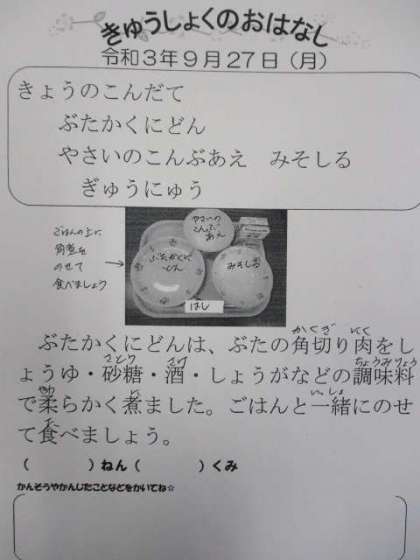 きゅうしょくのおはなし
令和3年9月27日(月)
きょうのこんだて
ぶたかくにどん
やさいのこんぶあえ　みそしる
ぎゅうにゅう
ごはんの上に
角煮を
のせて
食べましょう
やさいの
こんぶ
あえ
ぶたかくに
どん
みそしる
はし
ぶたかくにどんは、ぶたの角切り肉をし
ょうゆ・砂糖・酒・しょうがなどの調味料
で柔らかく煮ました。ごはんと一緒にのせ
て食べましょう。
(　　　)ねん(　　　)くみ
かんそうやかんしたことなどをかいてね☆